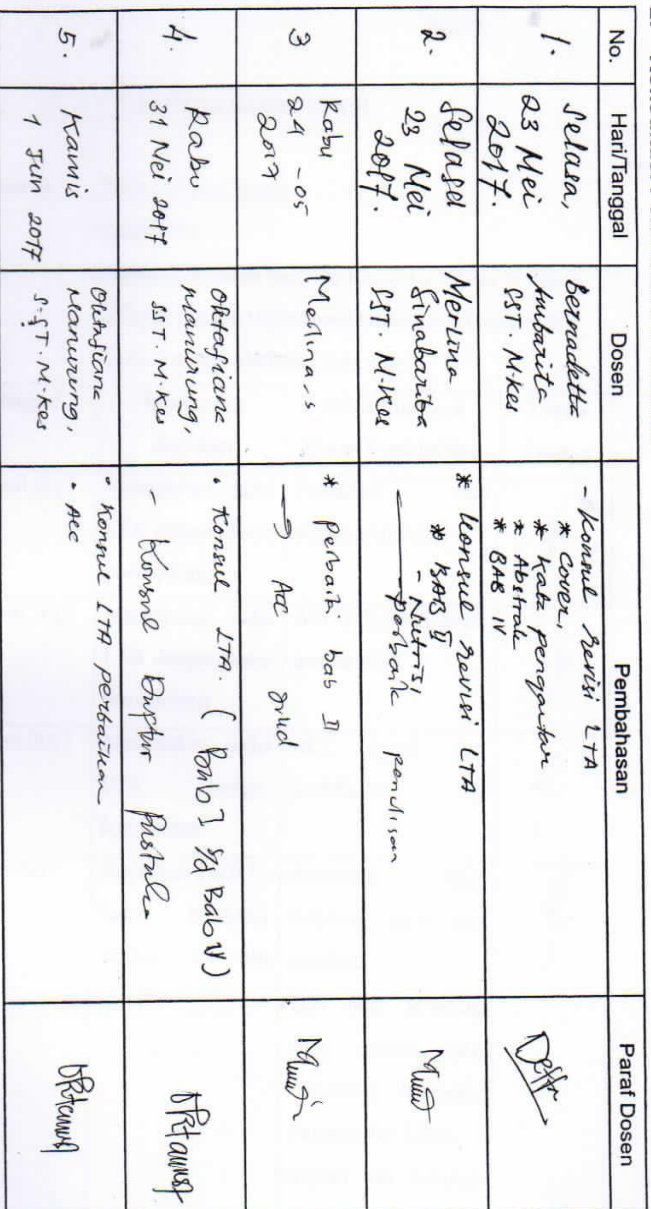 No.
Hari/Tanggal
Dosen
Pembahasan
Paraf Dosen
1.
Selasa,
23 Mei
2017.
Bernadetta
Ambarita
SST. M.Kes
- Konsul revisi LTA
* Cover,
* Kata pengantar
* Abstrak
* BAB IV
2.
Selasa
23 Mei
2017.
Merina
Sinabariba
SST. M.Kes
* Konsul revisi LTA
* BAB II
- Nutrisi
perbaik penulisan
3
Rabu
24 -05
2017
* perbaik bab II
→ Acc
4.
Rabu
31 Mei 2017
Oktafiana
Manurung,
SST. M.Kes
• Konsul (Bab I s/d Bab V)
- Konsul Daftar Pustaka
5.
Kamis
1 Jun 2017
Oktafiana
Manurung,
S.ST. M.Kes
• Konsul LTA perbaikan
• Acc